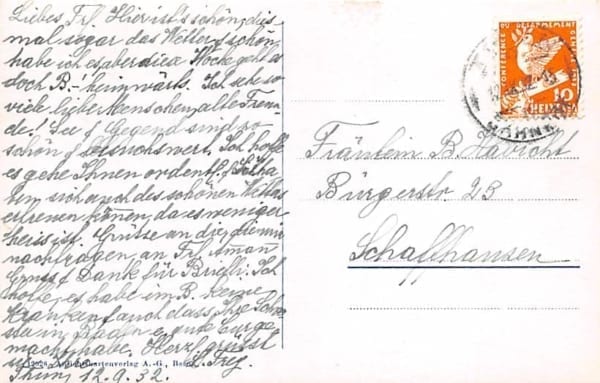 Liebes Frl. Hier ist's schön, dies
mal sogar das Wetter schön,
habe ich es aber diese Woche geht es
doch B.-heimwärts. Ich sehe so
viele liebe Menschen, alle Freun-
de. See & Gegend sind so
schön & besuchswert. Ich hoffe
es gehe Ihnen ordentl. &
sich auch des schönen Wetters
erfreuen können, da es weniger
heiss ist. Grüsse an die, die mir
nachfragen, an Frl. Aman
Gruss & Dank für Briefli. Ich
hoffe, es habe im B. keine
Kranken & auch dass Ihre Schwe-
ster in Baden e gute Kur ge-
macht habe. Herzl. grüsst
Frey
Thun, 12.9.32.
Ansichtkartenverlag A.-G.,
CONFERENCE DU DESARMEMENT GENEVE
10
HELVETIA
Fräulein B. Habicht
Bürgerstr 23
Schaffhausen